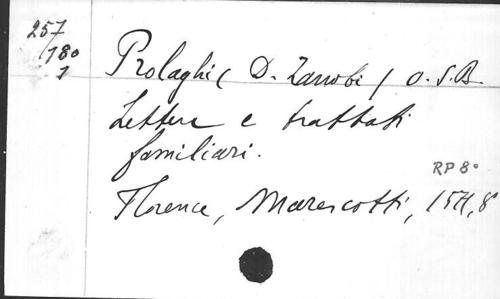 257
/180
1
Prolaghi ( D. Zanobi ) O. S. B.
Lettere e trattati
familiari.
RP 8°
Florence, Marescotti, 8°